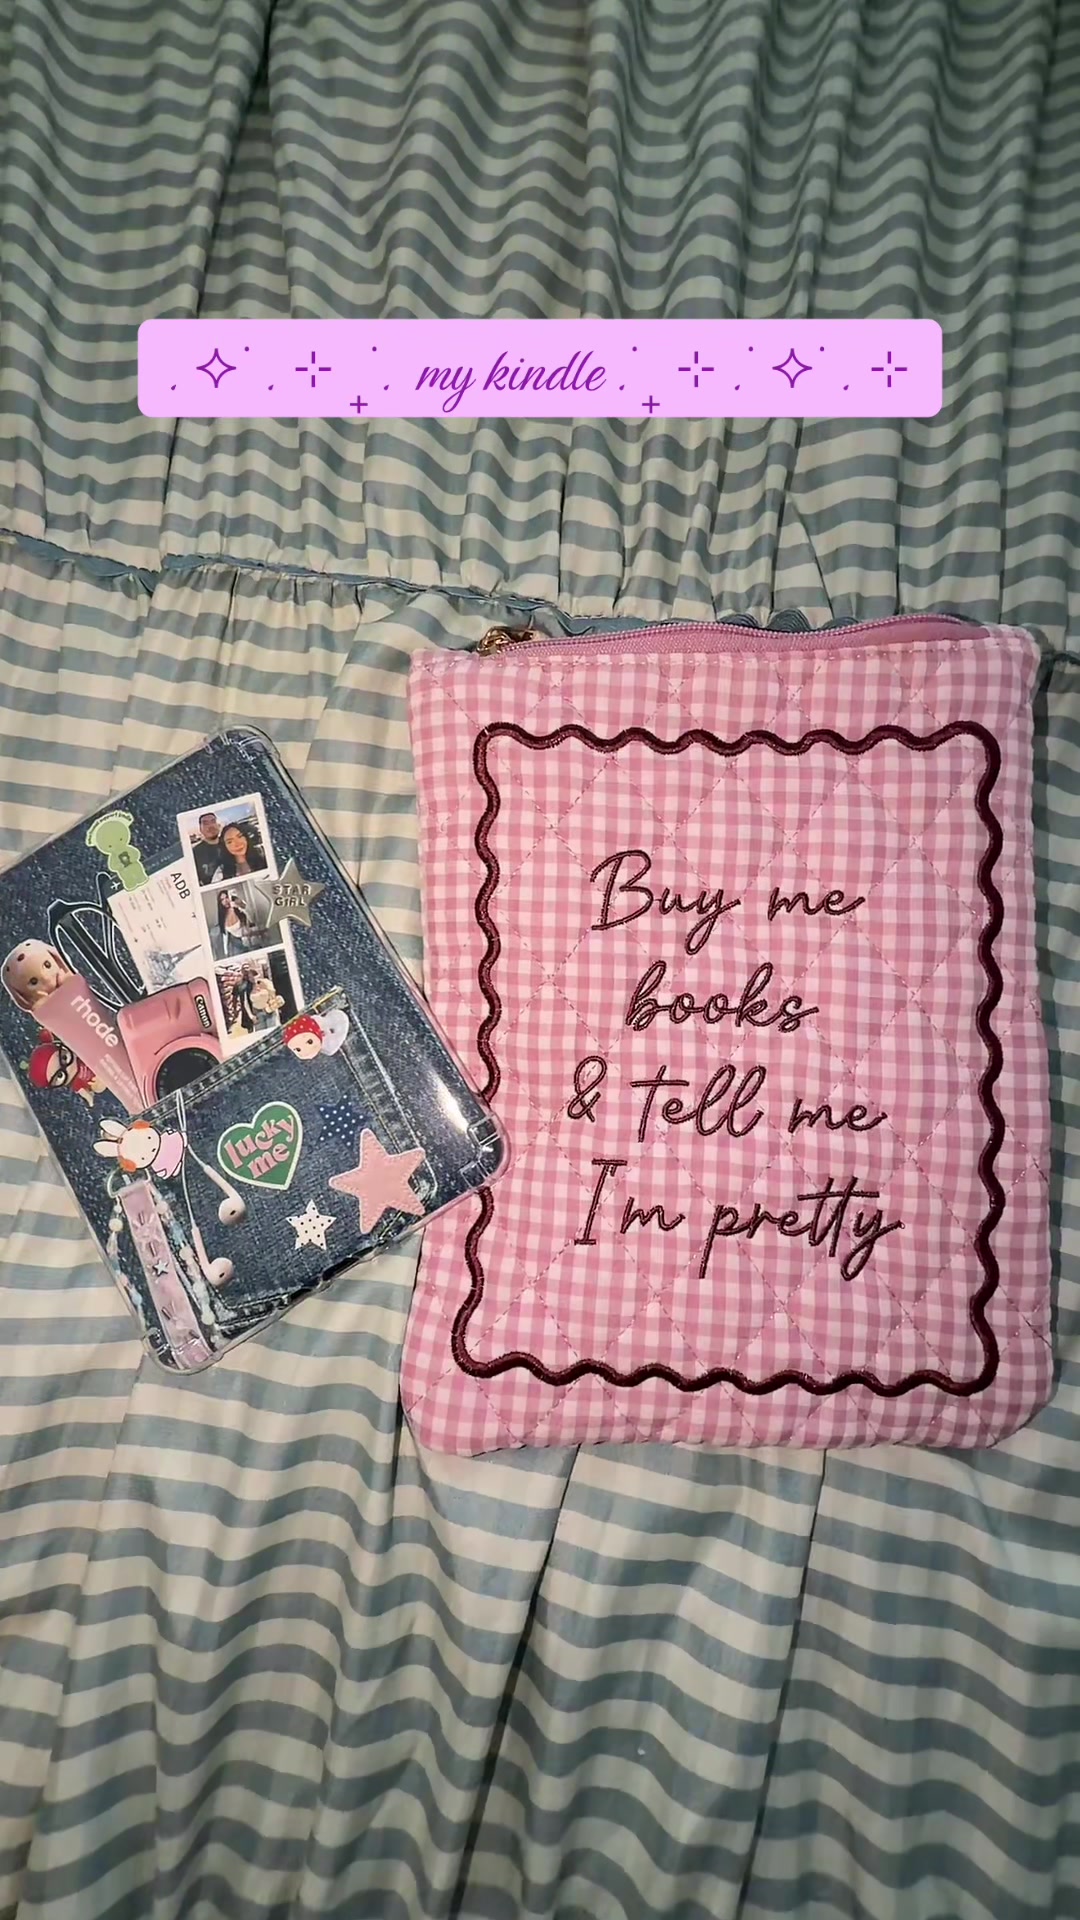 my kindle
Buy me
books
& tell me
I'm pretty
ADB
STAR
GIRL
rhode
Canon
lucky
me